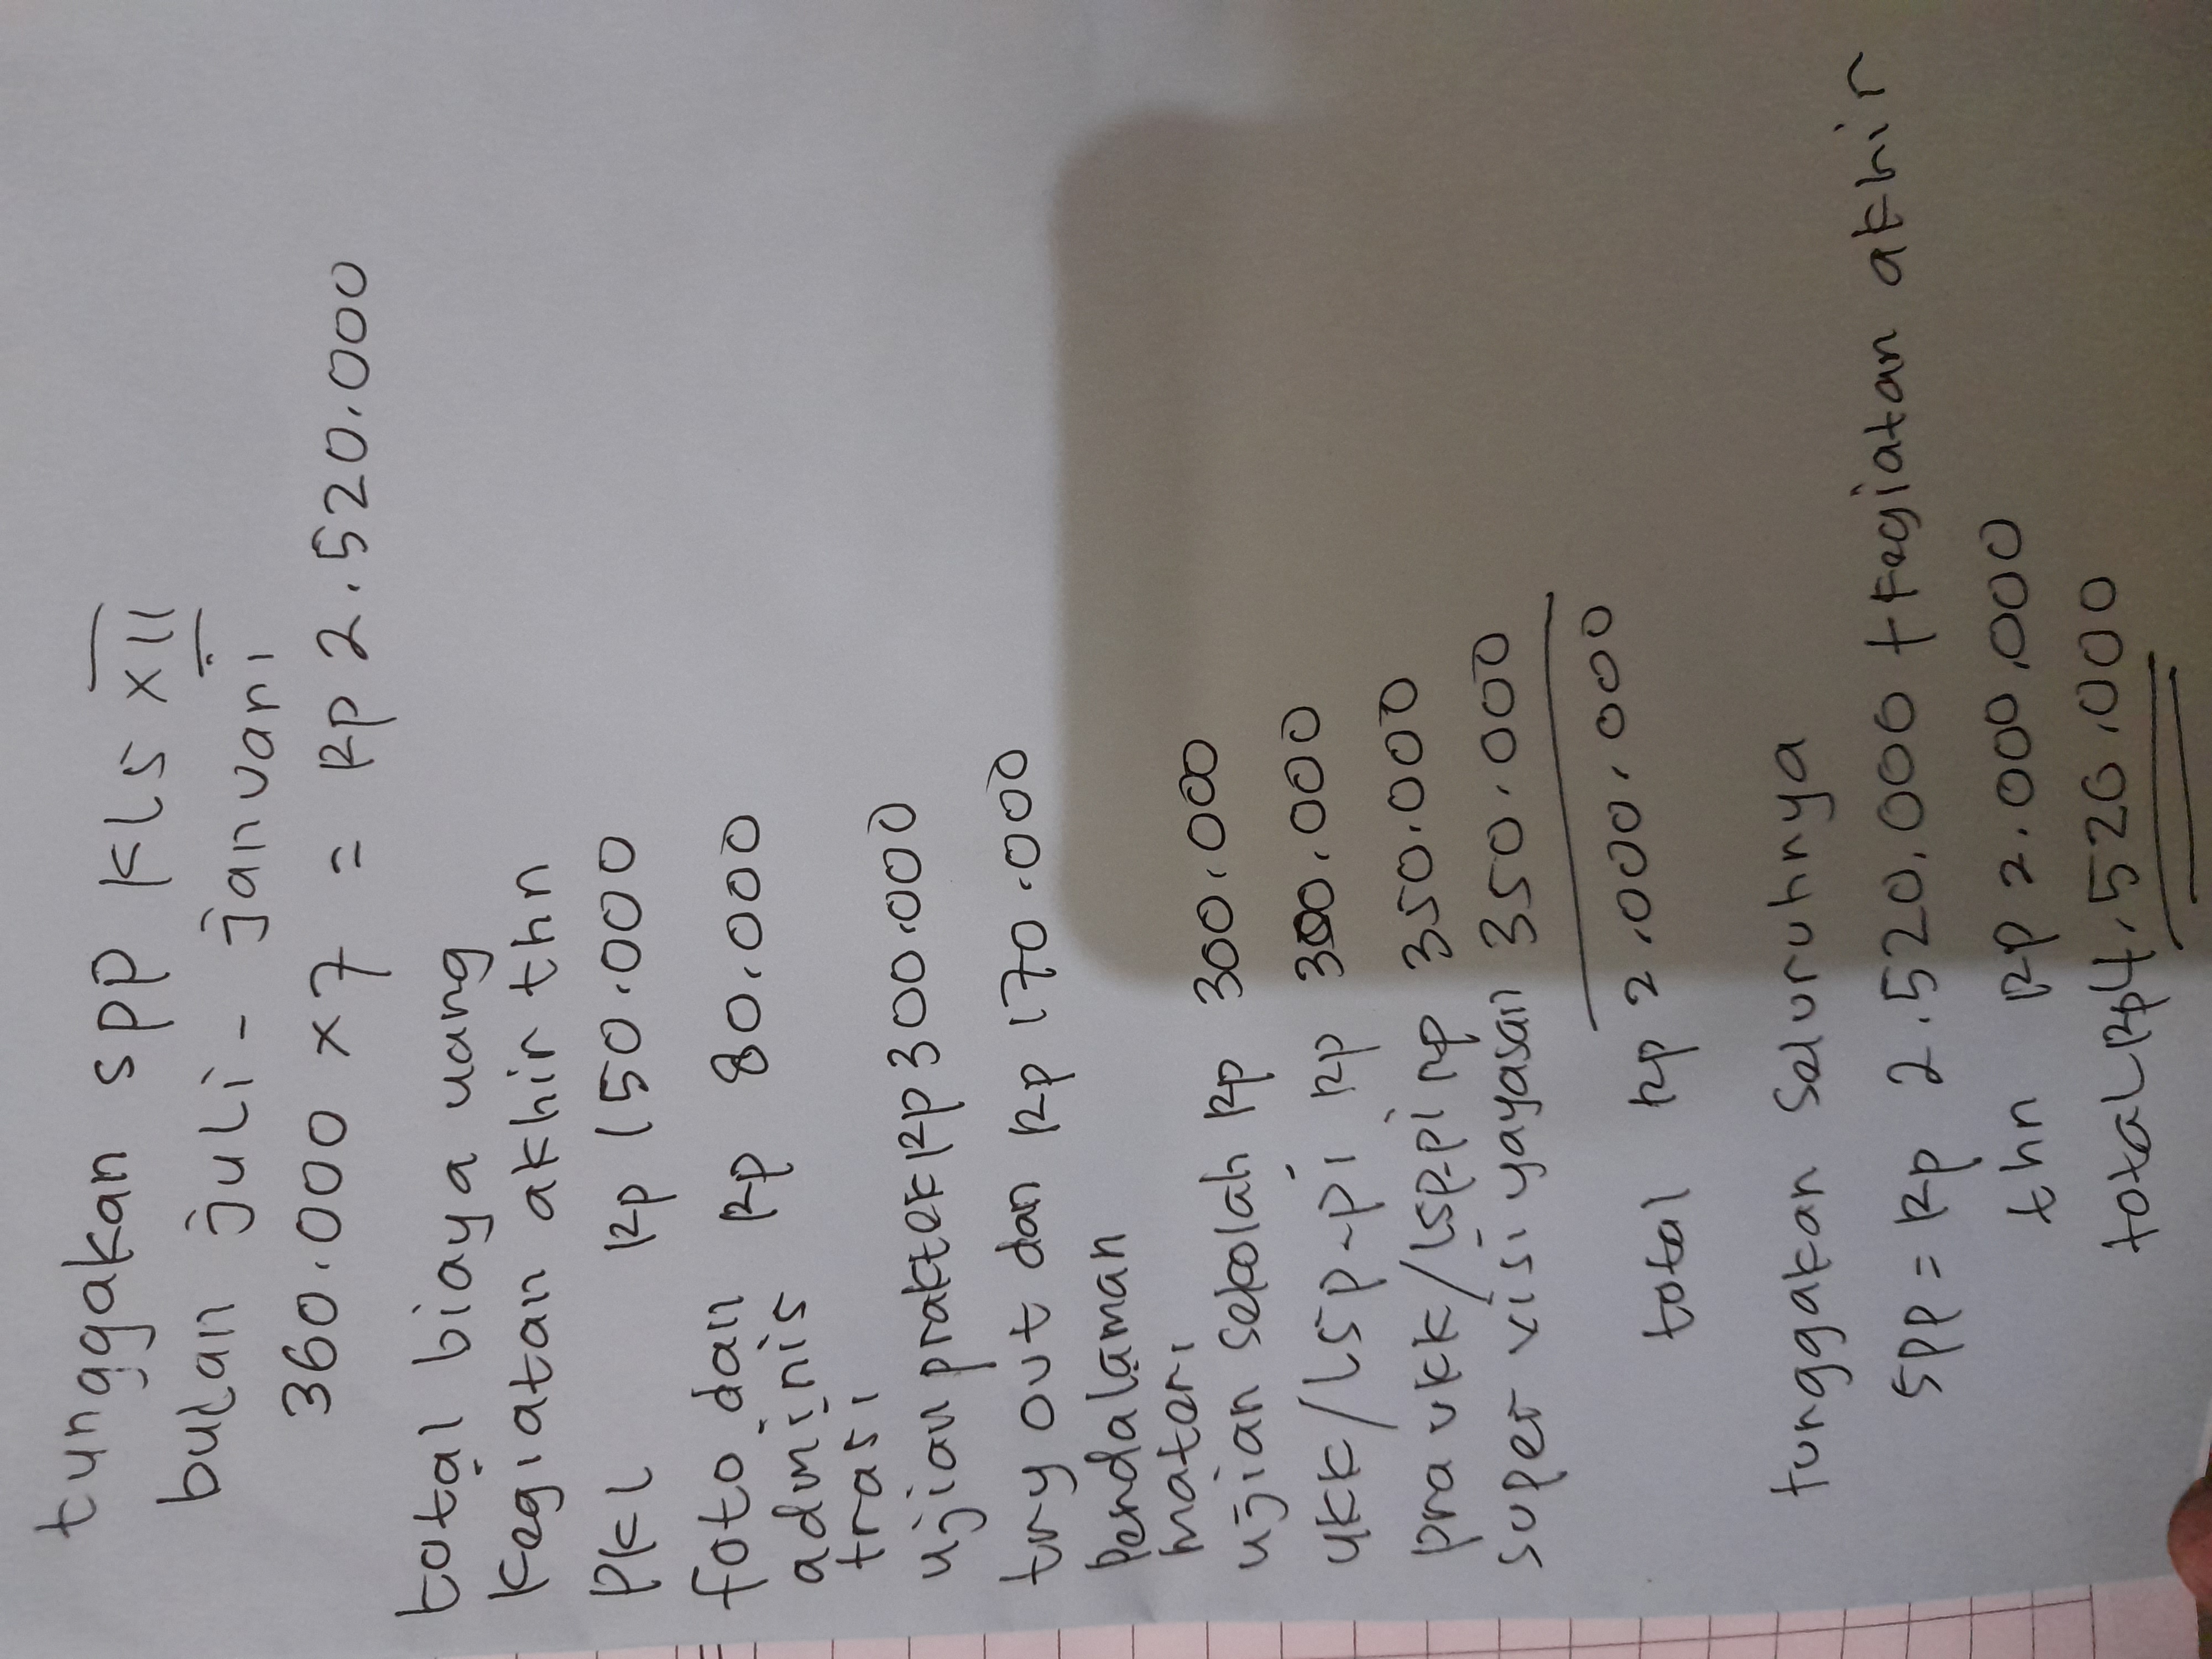 tunggakan spp kls XII
bulan juli - januari
360.000 x 7 = Rp 2.520.000
total biaya uang
kegiatan akhir thn
pkl Rp 150.000
foto dan Rp 80.000
adminis
trasi
ujian praktek Rp 300.000
try out dan Rp 170.000
pendalaman
materi
ujian sekolah Rp 300.000
ukk/lsp-pi Rp 300.000
pra ukk/lsp-pi Rp 350.000
super visi yayasan 350.000
total Rp 2.000.000
tunggakan seluruhnya
spp = Rp 2.520.000 + kegiatan akhir
thn Rp 2.000.000
total Rp 4.520.000